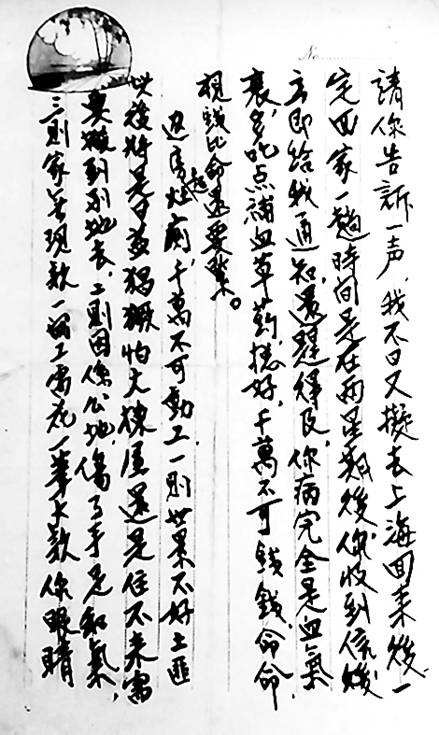 No
請你告訴一声，我不日又擬去上海回来後，一
定回家一趟時間是在兩星期後，你收到信後
立即给我通知，還趕得及，你病完全是血氣
衰，多吃点補血草药，好，千萬不可錢錢命命
視錢比命還要緊。
房灶廁，千萬不可動工，一則世界不好土匪
以後將是日益猖獗怕大棟屋還是住不来需
要搬到別地去，二則因係公地，傷了手足和氣，
三則家無現款一工需花一筆大款你眼睛